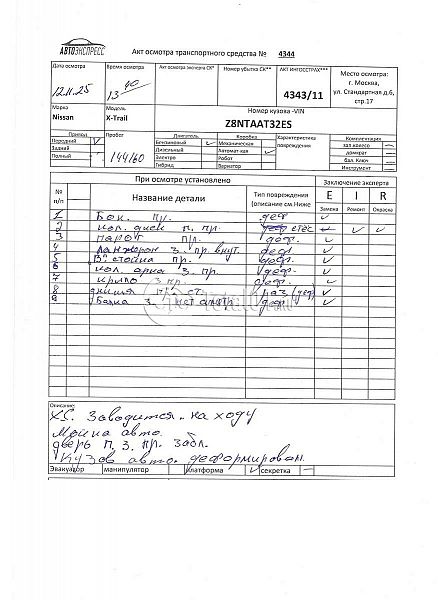 АВТОЭКСПРЕСС
Акт осмотра транспортного средства № 4344
Дата осмотра Время осмотра Акт осмотра эксперта СК* Номер убытка СК** АКТ ИНГОССТРАХ***
12.11.25 13 40 4343/11
Место осмотра:
г. Москва,
ул. Стандартная д.6,
стр.17
Марка Модель Номер кузова -VIN
Nissan X-Trail Z8NTAAT32ES
Привод Пробег Двигатель Коробка Характеристика повреждения Комплектация
Передний V Бензиновый Механическая зап.колесо
Задний Дизельный Автомат-кая домкрат
Полный 144160 Электро Робот бал. Ключ
Гибрид Вариатор Инструмент
При осмотре установлено Заключение эксперта
№ п/п Название детали Тип повреждения (описание см.Ниже E I R
Замена Ремонт Окраска
1 Бок. пр. деф
2 кол. диск п. пр.
3 порог пр. деф.
4 Лонжерон З. пр. внут. деф
5 В. стойка пр. деф.
6 кол. арка З. пр. деф.
7 крыло З. пр. деф.
8 днище
9 Балка З. деф
Описание:
ХС. Заводится. на ходу
авто.
дверь П, З. пр. забл.
Кузов авто. деформирован.
Эвакуатор манипулятор платформа секретка